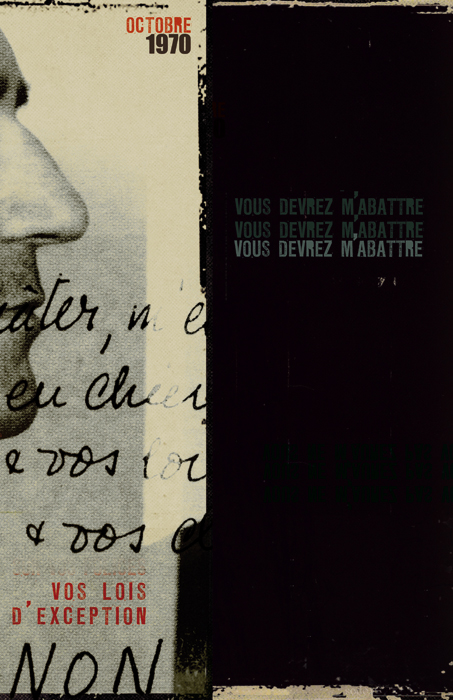 OCTOBRE
1970
VOUS DEVREZ M'ABATTRE
VOUS DEVREZ M'ABATTRE
VOUS DEVREZ M'ABATTRE
âter, m'e
en chien
& vos loi
& vos d
VOS LOIS
D'EXCEPTION
NON